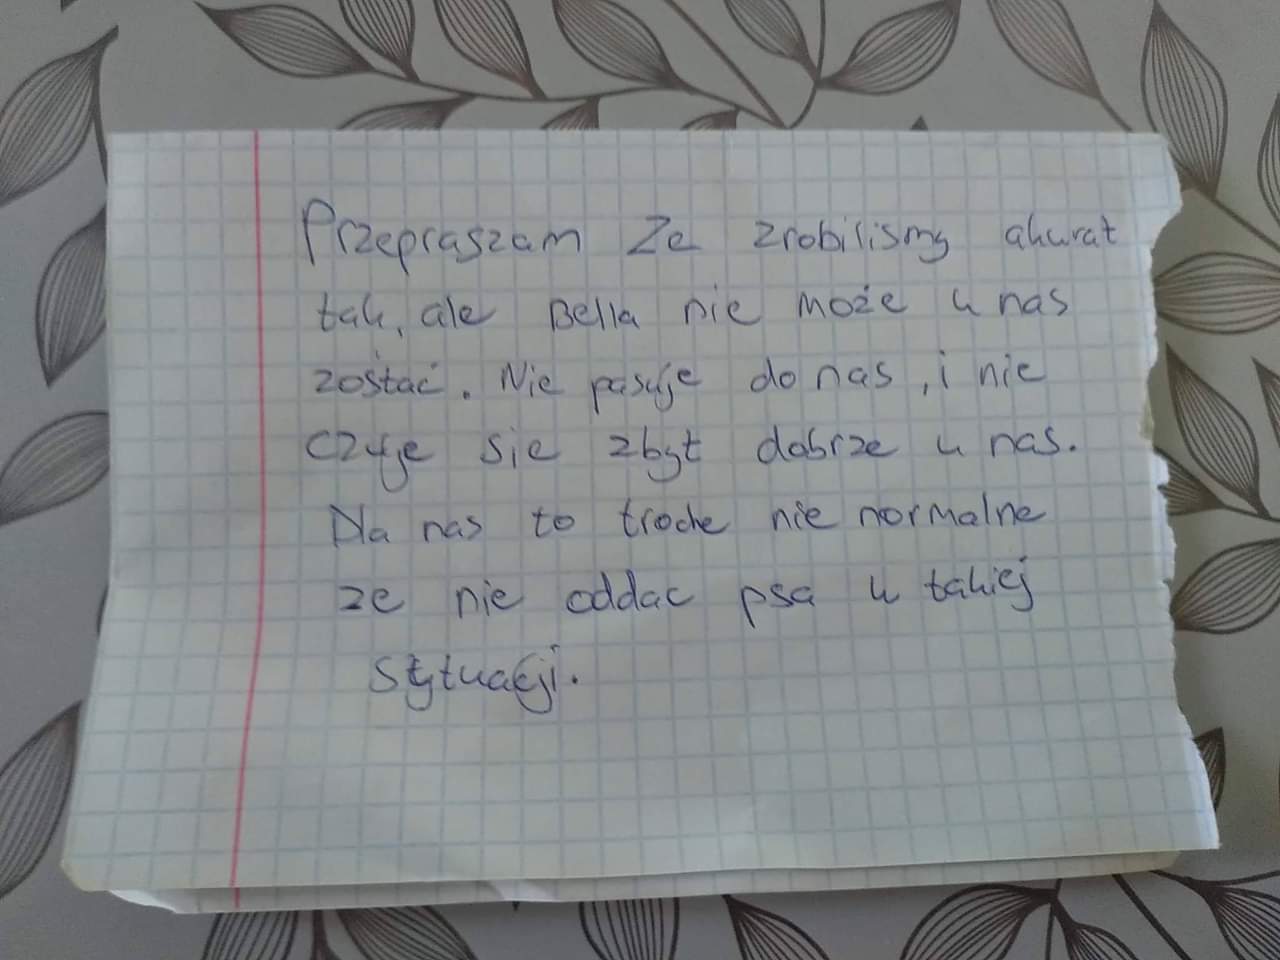 Przepraszam Ze zrobilismy akurat
tak, ale Bella nie może u nas
zostać. Nie pasuje do nas, i nie
czuje sie zbyt dobrze u nas.
Dla nas to troche nie normalne
ze nie oddac psa w takiej
sytuacji.